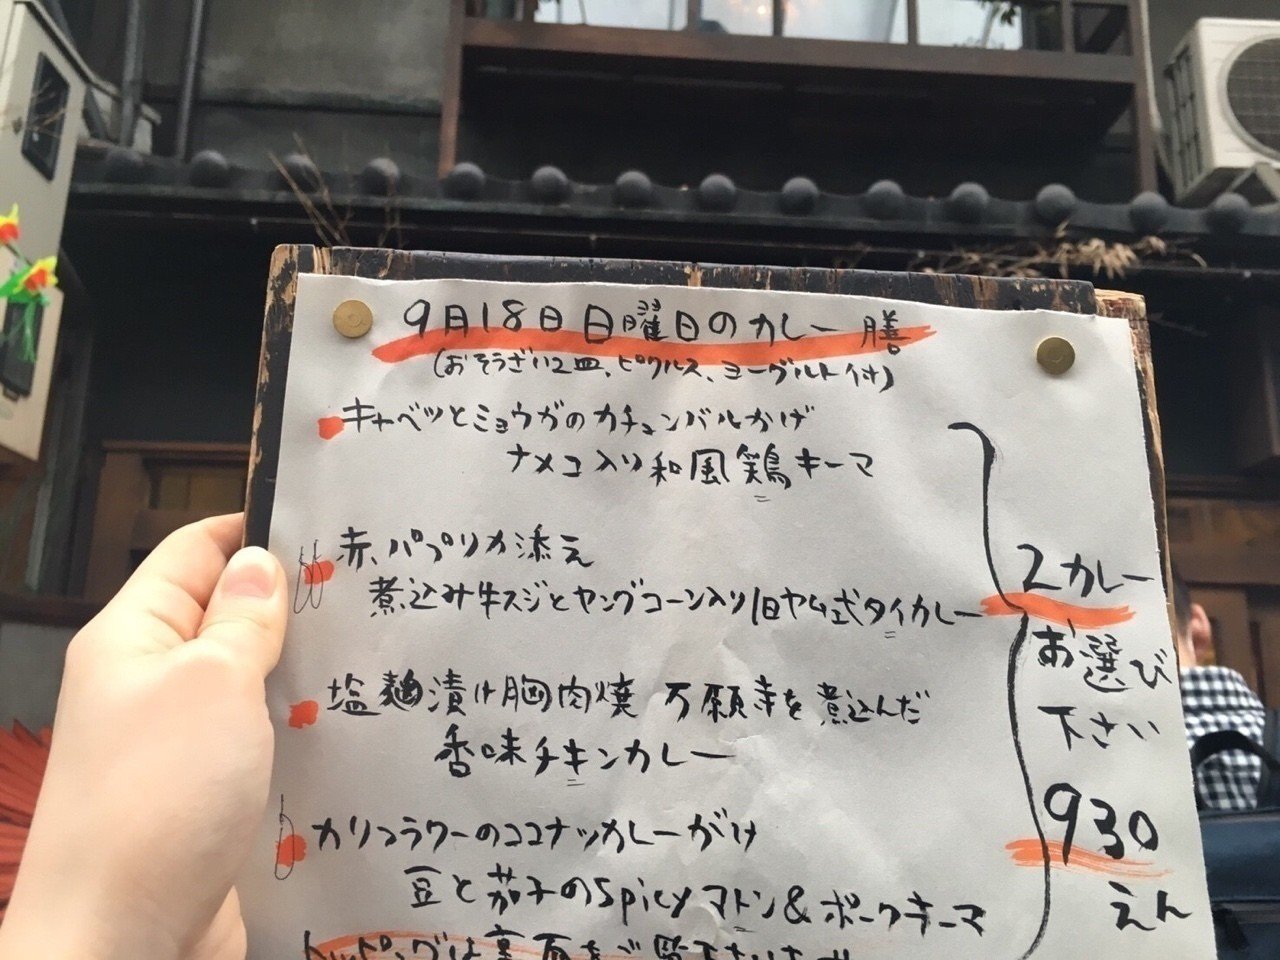 9月18日日曜日のカレー膳
(おそうざい2皿、ピクルス、ヨーグルト付)
キャベツとミョウガのカチュンバルかけ
ナメコ入り和風鶏キーマ
赤パプリカ添え
煮込み牛スジとヤングコーン入り旧ヤム式タイカレー
塩麹漬け胸肉焼 万願寺を煮込んだ
香味チキンカレー
カリフラワーのココナッツカレーがけ
豆と茄子のspicyマトン&ポークキーマ
2カレー
お選び
下さい
930
えん
トッピングは裏面をご覧下さいませ